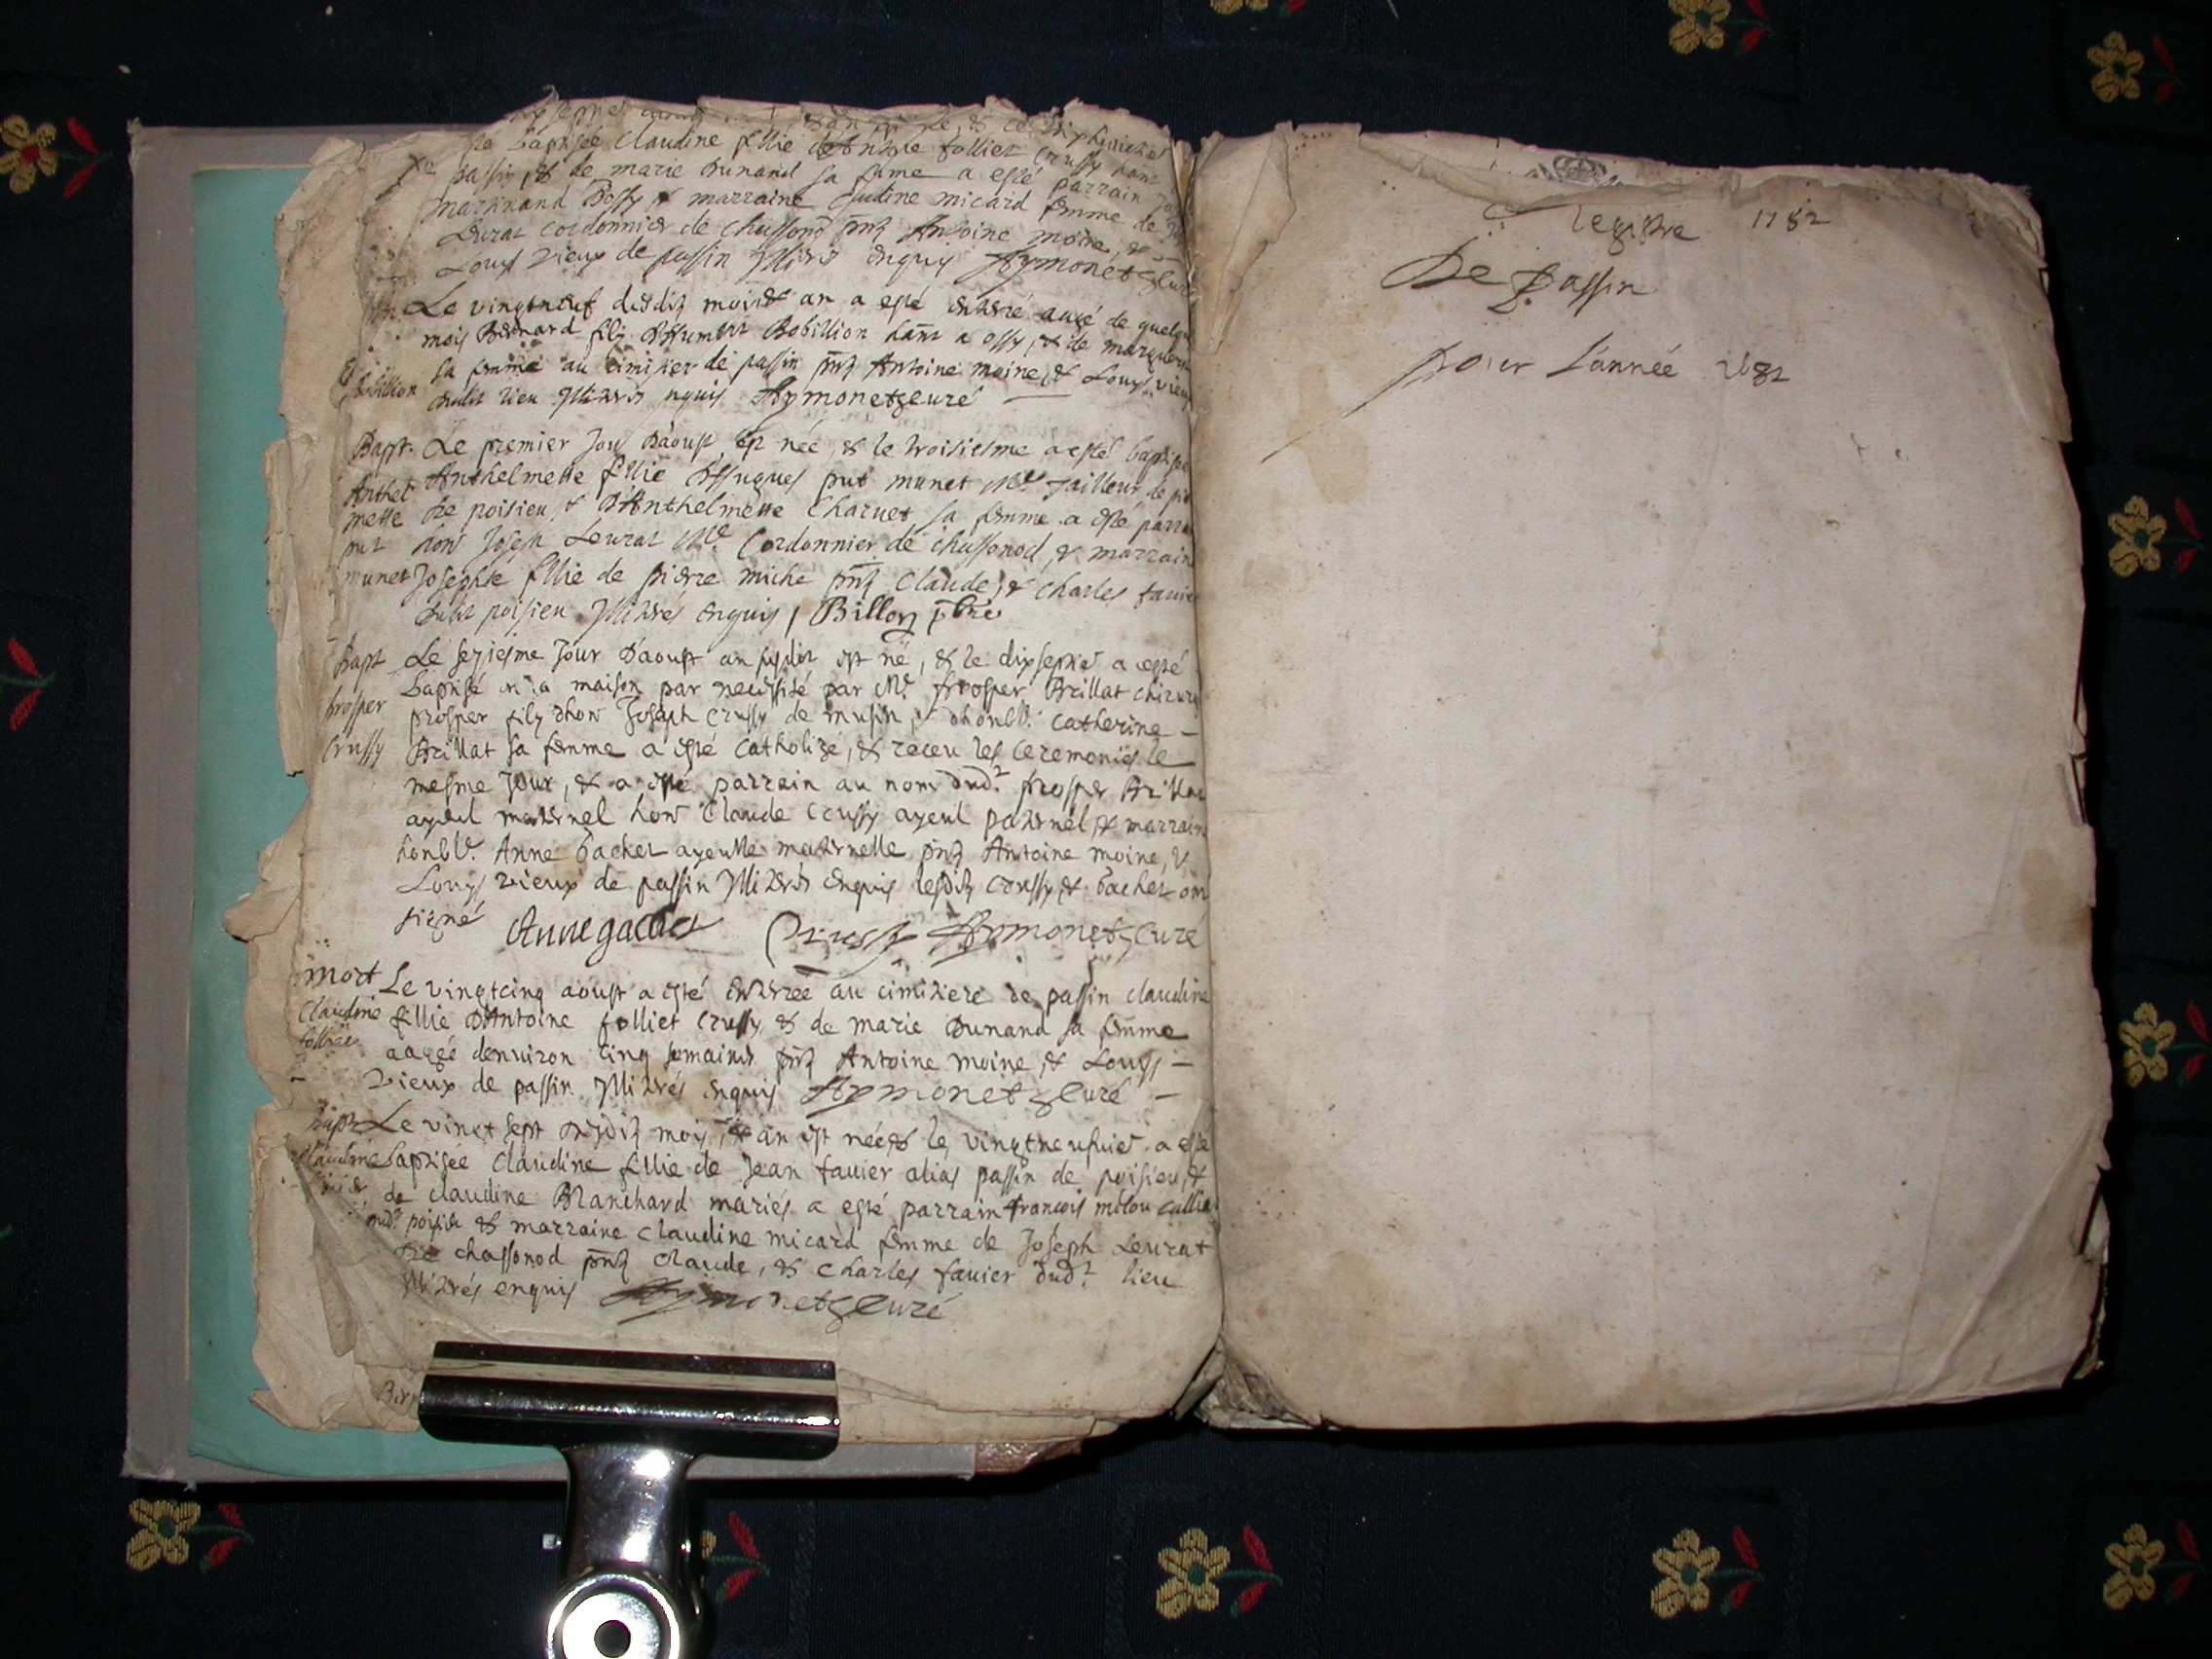 baptisée Claudine fillie folliet Crussy
passin, & de marie Dunand sa fame a esté parrain
marraine Claudine micard femme de
cordonnier de Chassonod pnt Antoine moine, &
Louys vieux de passin Illitrés enquis Aymonet Curé
Le vingtneuf desdit mois & an a esté enterré augé de quelque
mois Bernard filz Robillion de
sa femme au cimitier de passin pnt Antoine moine, & Louys vieux
Robillion dudit lieu Illitrés nquis Aymonet Curé
Bapt. Le premier Jour D'aoust est née, & le troisiesme a esté baptisé
Anthel Anthelmette fillie D'hugues put munet Me Tailleur
mette de poisieu, & D'Anthelmette Charuet sa femme a esté parra
put hon Joseph Leurat Me Cordonnier de chassonod, & marrain
munet Josephte fillie de pierre miche pnt Claude, & Charles favier
dudit poisieu Illitrés enquis Billon pbre
Bapt Le seziesme Jour D'aoust an susdit est né, & le dixseptie a esté
baptisé en la maison par necessité par Me prosper Brillat chirur
prosper prosper filz d'hon Joseph Crussy de musin, & d'honble Catherine
Crussy Brillat sa femme a esté catholizé, & receu les ceremonies le
mesme Jour, & a esté parrain au nom dudt prosper Brillat
ayeul maternel hon Claude Crussy ayeul paternel, & marrain
honble Anne gachet ayeulle maternelle pnt Antoine moine, &
Louys vieux de passin Illitrés enquis lesdit Crussy, & gachet on
signé Anne gachet Crussy Aymonet Curé
mort Le vingtcinq aoust a esté enterrée au cimitiere de passin claudine
Claudine fillie D'Antoine folliet Crussy, & de marie Dunand sa femme
folliet aagée denuiron cinq semaines pnt Antoine moine, & Louys
vieux de passin Illitrés enquis Aymonet Curé
Bapt Le vingt sept desdit mois, & an est née & le vingtneufuie a esté
claudine baptisée Claudine fillie de Jean favier alias passin de poisieu, &
de claudine Blanchard mariés a esté parrain francois
dudt poisieu & marraine Claudine micard femme de Joseph Leurat
de chassonod pnt Claude, & Charles favier dudt lieu
Illitrés enquis Aymonet Curé
registre 1782
De Passin
pour L'année 1682